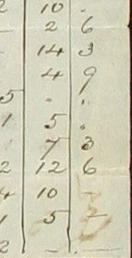 10 .
2 6
14 3
4 9
5 . .
1 5 .
7 3
2 12 6
4 10 -
1 5
2 - -